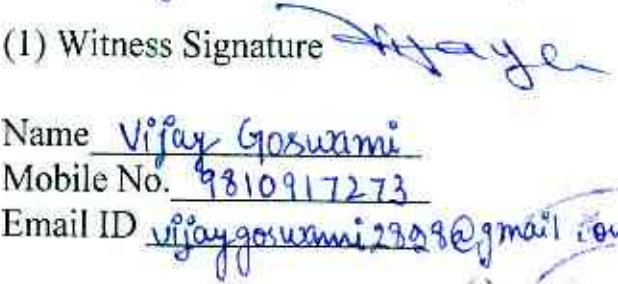 (1) Witness Signature Vijay
Name Vijay Goswami
Mobile No. 9810917273
Email ID vijaygoswami2898@gmail.com